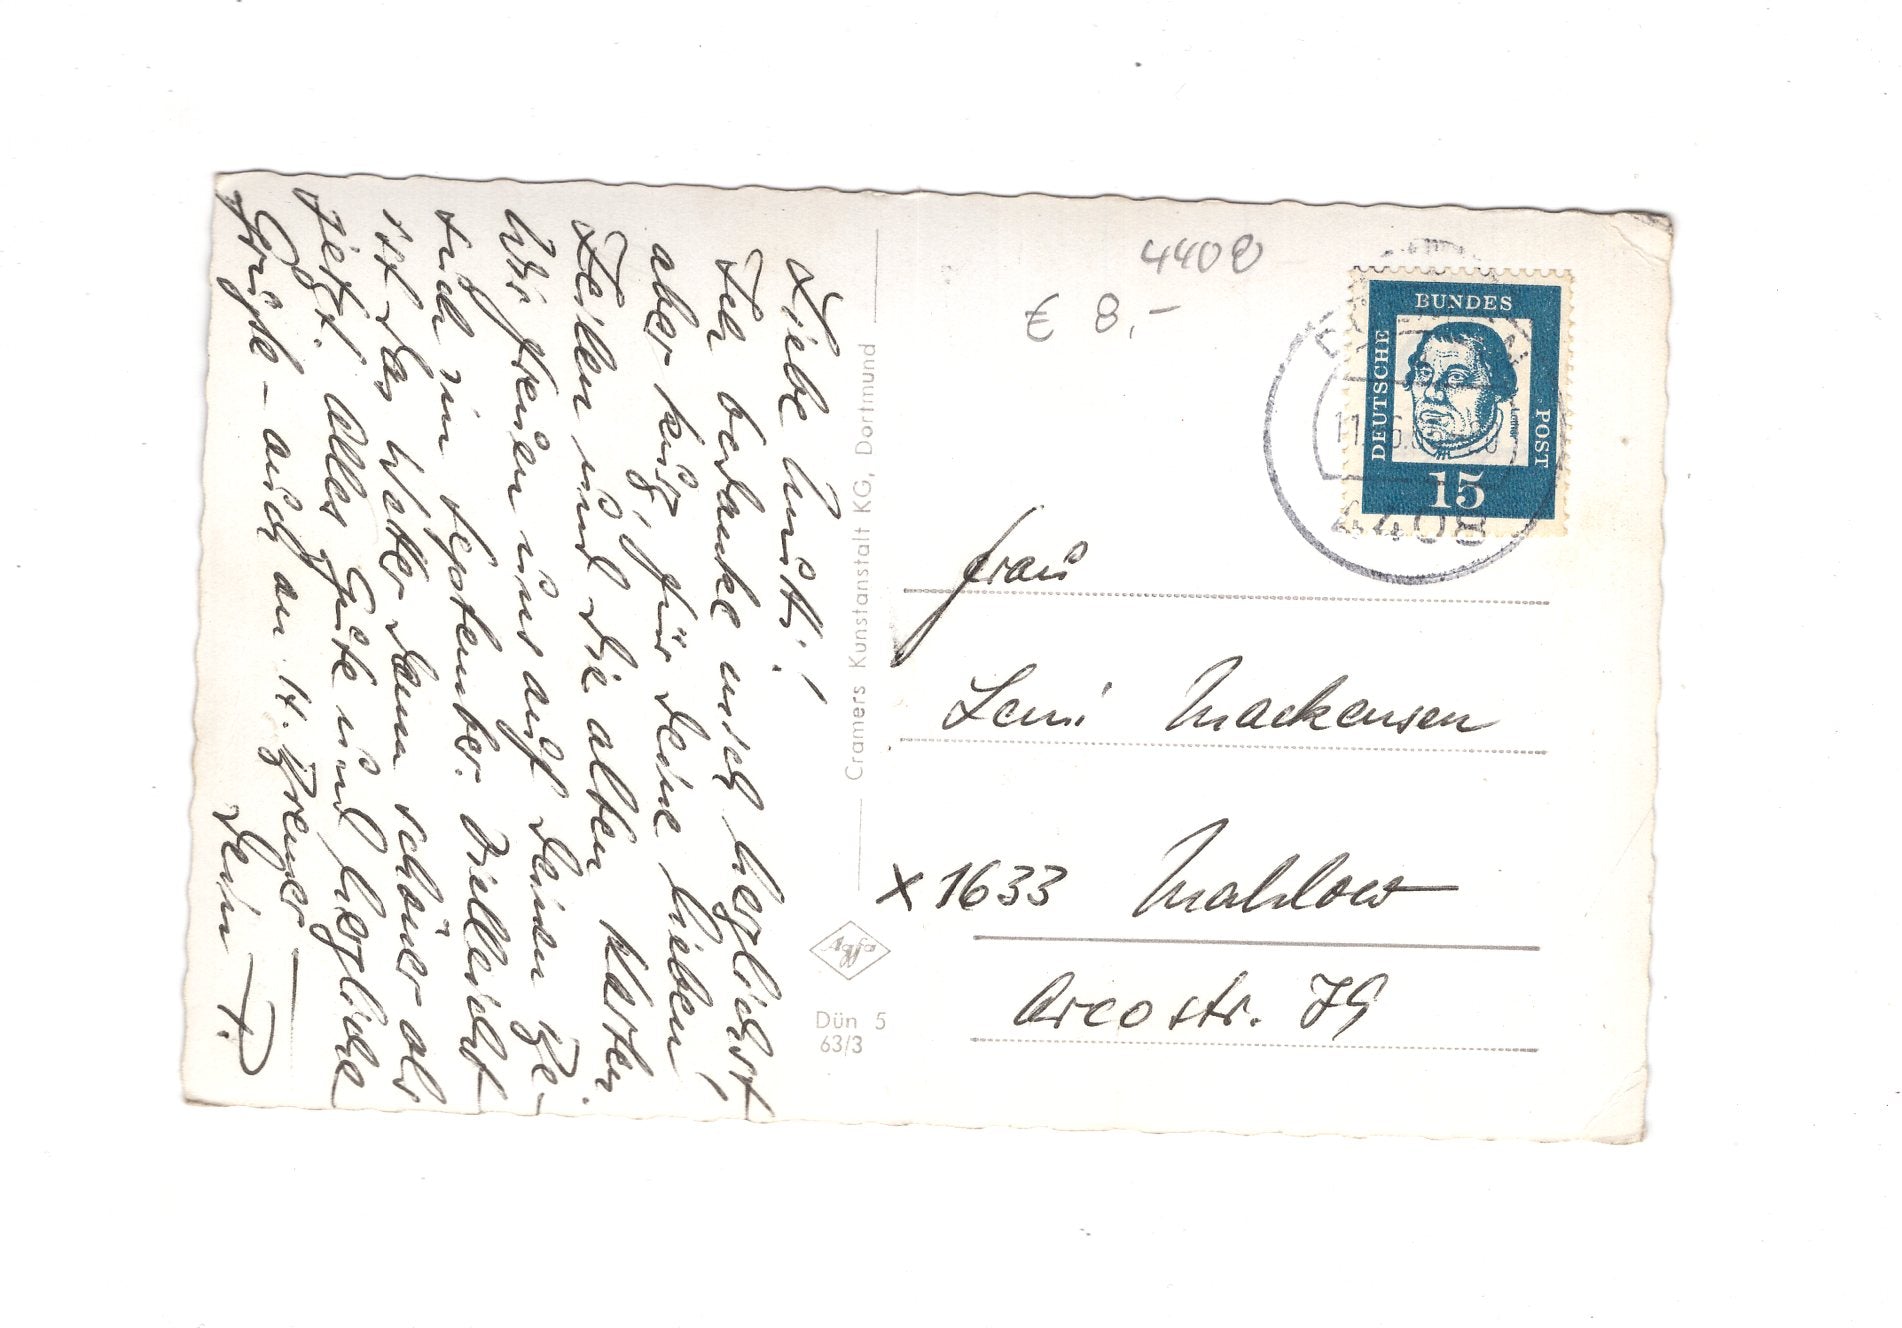 Liebe Mutti!
Ich bedanke mich herzlichst
aber kurz, für Deine lieben
Zeilen und die alten Karten.
Wir freuen uns auf Deinen Be-
such im September. Vielleicht
ist das Wetter dann schöner als
jetzt. Alles Gute und herzliche
Grüße - auch an H. Bremer
Dein
Cramers Kunstanstalt KG, Dortmund
Agfa
Dün 5
63/3
4408
€ 8,-
DEUTSCHE
BUNDES
POST
Luther
15
4408
Frau
Leni Mackensen
X 1633 Mahlow
Arcostr. 79